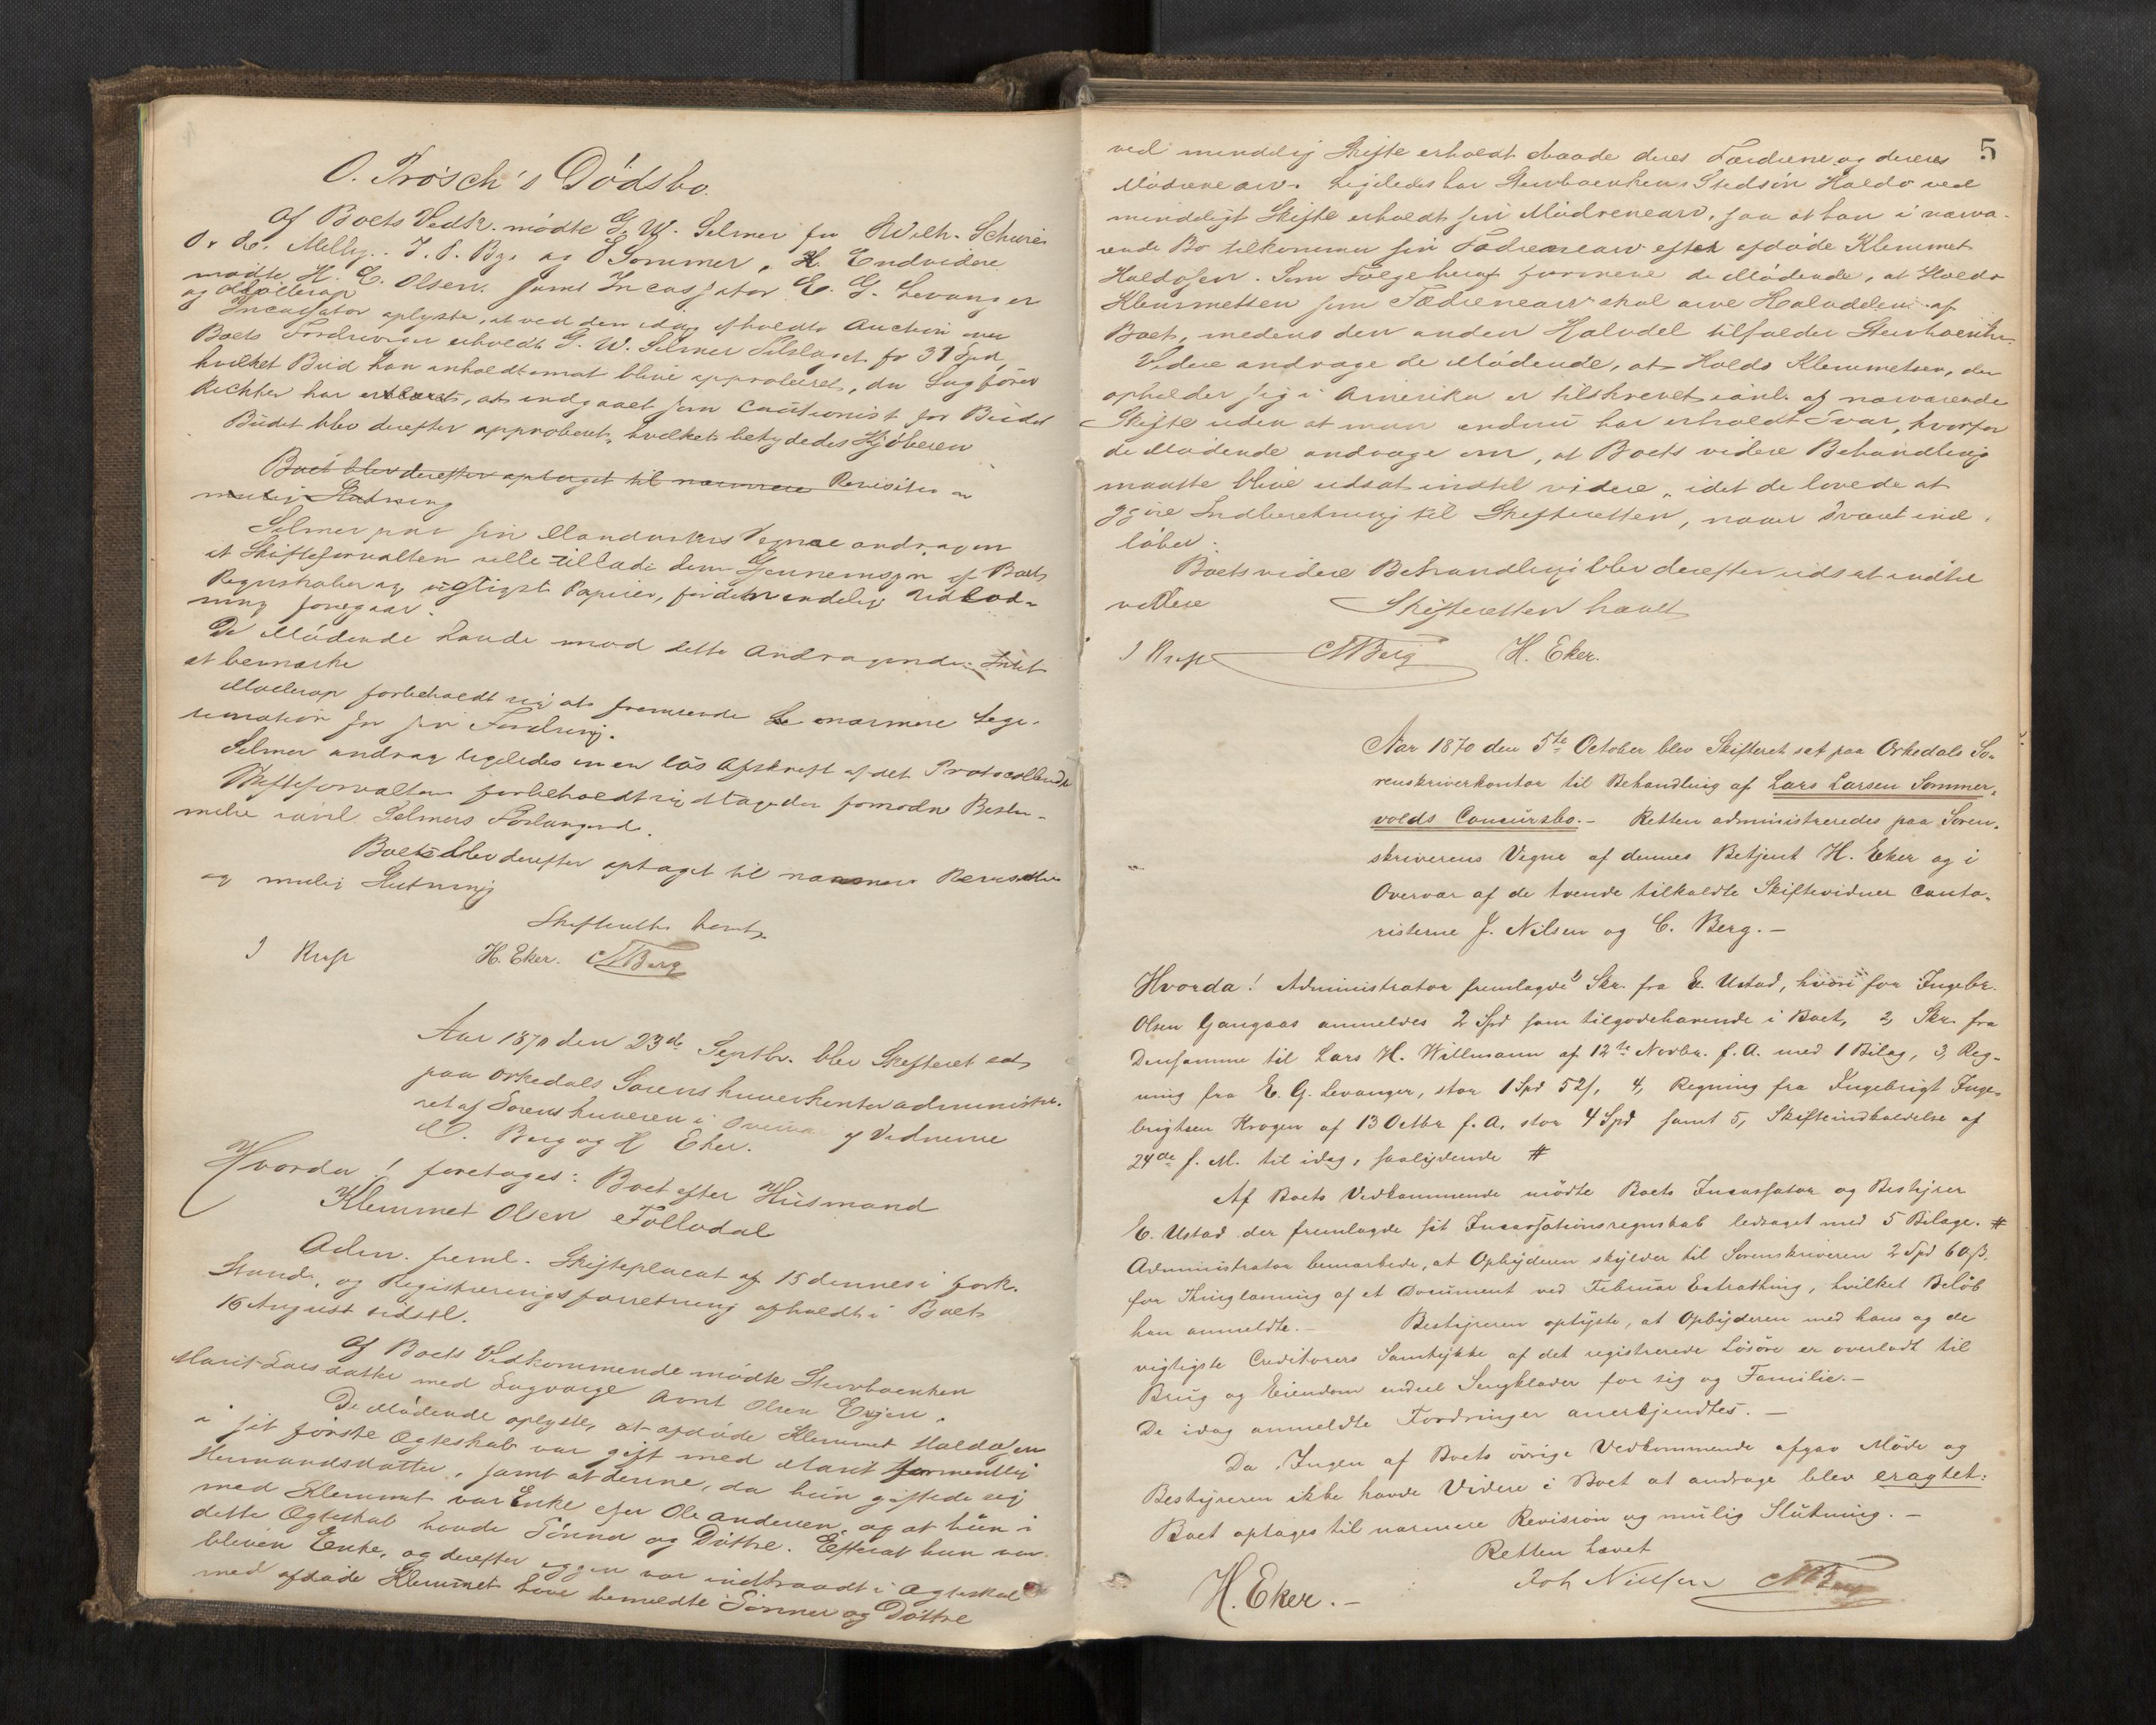 O. Trösch's Dödsbo.
Af Boets Vedk. mödte G. W. Selmer for Wilh. Schreiner
O. & C. Melby, J. P. By og E Sommer. Endvidere
mødte H. C. Olsen samt Incassator E. G. Levanger
og Møllerop
Incassator oplyste, at ved den idag afholdte Auction over
Boets Fordringer erholdt G. W. Selmer Tilslaget for 31 Spd,
hvilket Bud han anholdt om at blive approberet, da Sagfører
Richter har erklæret, at indgaaet som Cautionist for Budet
Budet blev derefter approberet, hvilket betydedes Kjøberen
Boet blev derefter optaget til nærmere Revision og
mulig Slutning
Selmer paa sin Mandants Vegne androg om
at Skifteforvalten ville tillade dem Gjennemsyn af Boets
Regnskaber og vigtigste Papirer, förden endelig Udlod-
ning foregaar.
De Mødende havde mod dette Andragende Intet
at bemærke
Møllerop forbeholdt sig at fremsende nærmere Legi-
timation for sin Fordring.
Selmer androg ligeledes om en løs Afskrift af det Protocollerede
Skifteforvalteren forbeholdt sig at tage den fornødne Bestem-
melse i anl. Selmers Forlangende.
Boet blev derefter optaget til nærmere Revision
og mulig Slutning
Skifteretten hævet
J Krefr H. Eker. C Berg
Aar 1870 den 23de Septbr. blev Skifteret sat
paa Orkedals Sorenskriverkontor administre-
ret af Sorenskriveren i Overvær af Vidnerne
C. Berg og H Eker.
Hvorda! foretages: Boet efter Husmand
Klemmet Olsen Follodal
Adm. freml. Skifteplacat af 15 dennes i fork.
Stand, og Registreringsforretning afholdt i Boet
16 August sidstl.
Af Boets Vedkommende mødte Stervboenken
Marit Larsdatter med Lagværge Arnt Olsen Evjen.
De Mødende oplyste, at afdøde Klemmet Haldosen
i sit første Ægteskab var gift med Marit formentlig
Hermundsdatter, samt at denne, da hun giftede sig
med Klemmet var Enke efter Ole Andersen og at hun i
dette Ægteskab havde Sønner og Døttre. Efterat hun var
bleven Enke, og derefter igjen var indtraadt i Ægteskab
med afdøde Klemmet have bemeldte Sønner og Døttre
5
ved mindelig Skifte erholdt baade deres Fædrene og deres
Mødrene arv. Ligeledes har Stervboenkens Stedsøn Haldo ved
mindeligt Skifte erholdt sin Mødrenearv, saa at han i nærvæ-
rende Bo tilkommer sin Fædrenearv efter afdøde Klemmet
Haldosen. Som Følge heraf formene de Mødende, at Haldo
Klemmetsen som Fædrenearv skal arve Halvdelen af
Boet, medens den anden Halvdel tilfalder Stervboenken.
Videre androge de Mødende, at Haldo Klemmetsen, der
opholder sig i Amerika er tilskrevet i anl. af nærværende
Skifte uden at man endnu har erholdt Svar, hvorfor
de Mødende androge om, at Boets videre Behandling
maatte blive udsat indtil videre, idet de lovede at
gjøre Indberetning til Skifteretten, naar Svaret ind-
løber.
Boets videre Behandling blev derefter udsat indtil
videre
Skifteretten hævet
J Krefr C Berg H. Eker.
Aar 1870 den 5te October blev Skifteret sat paa Orkedals So-
renskriverkontor til Behandling af Lars Larsen Sommer-
volds Concursbo. - Retten administreredes paa Soren-
skriverens Vegne af dennes Betjent H. Eker og i
Overvær af de tvende tilkaldte Skiftevidner Canto-
risterne J. Nilsen og C. Berg. -
Hvorda! Administrator fremlagde 1, Skr. fra E. Ustad, hvori for Ingebr.
Olsen Gangaas anmeldes 2 Spd som tilgodehavende i Boet, 2, Skr. fra
Densamme til Lars H. Willmann af 12te Novbr. f. A. med 1 Bilag, 3, Reg-
ning fra E. G. Levanger, stor 1 Spd 52/, 4, Regning fra Ingebrigt Inge-
brigtsen Krogen af 13 Octbr f. A. stor 4 Spd samt 5, Skifteindkaldelse af
24de f. M. til idag, saalydende #
Af Boets Vedkommende mödte Boets Incassator og Bestyrer
E. Ustad der fremlagde sit Incassationsregnskab ledsaget med 5 Bilage. #
Administrator bemærkede, at Opbyderen skylder til Sorenskriveren 2 Spd 60 β.
for Thinglæsning af et Document ved Februar Extrathing, hvilket Beløb
han anmeldte. - Bestyreren oplyste, at Opbyderen med hans og de
vigtigste Creditorers Samtykke af det registrerede Lösöre er overladt til
Brug og Eiendom endeel Sengklæder for sig og Familie. -
De idag anmeldte Fordringer anerkjendtes. -
Da Ingen af Boets övrige Vedkommende afgav Möde og
Bestyreren ikke havde Videre i Boet at andrage blev eragtet:
Boet optages til nærmere Revision og mulig Slutning. -
Retten hævet
H. Eker. - Joh Nielsen C Berg